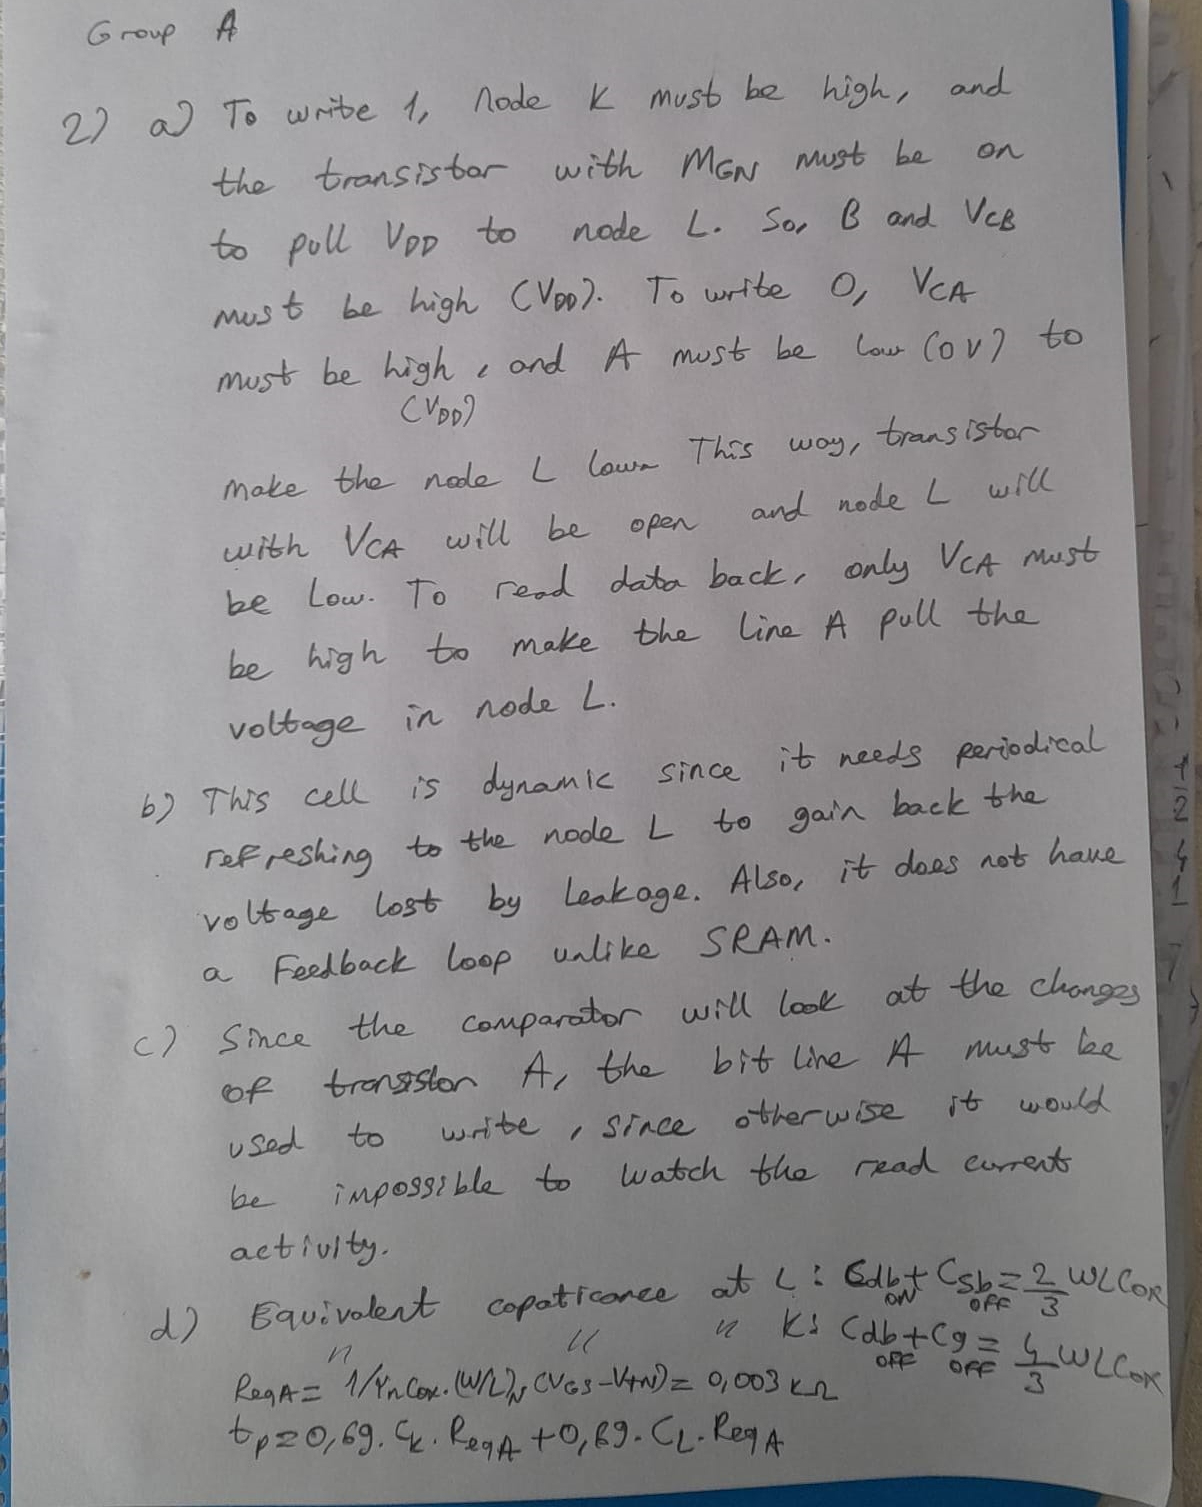 Group A
2) a) To write 1, Node K must be high, and
the transistor with MGN must be on
to pull VDD to node L. So, B and VCB
must be high (VDD). To write 0, VCA
must be high, and A must be low (0V) to
(VDD)
make the node L low. This way, transistor
with VCA will be open and node L will
be low. To read data back, only VCA must
be high to make the line A pull the
voltage in node L.
b) This cell is dynamic since it needs periodical
refreshing to the node L to gain back the
voltage lost by leakage. Also, it does not have
a Feedback loop unlike SRAM.
c) Since the comparator will look at the changes
of transistor A, the bit line A must be
used to write, since otherwise it would
be impossible to watch the read current
activity.
d) Equivalent capaticance at L: Cdb + Csb = 2/3 WLCox
ON OFF
" " " K: Cdb + Cg = 4/3 WLCox
OFF OFF
ReqA = 1/μnCox.(W/L)N (VGS-VtN) = 0,003 kΩ
tp = 0,69. CK. ReqA + 0,69. CL. ReqA